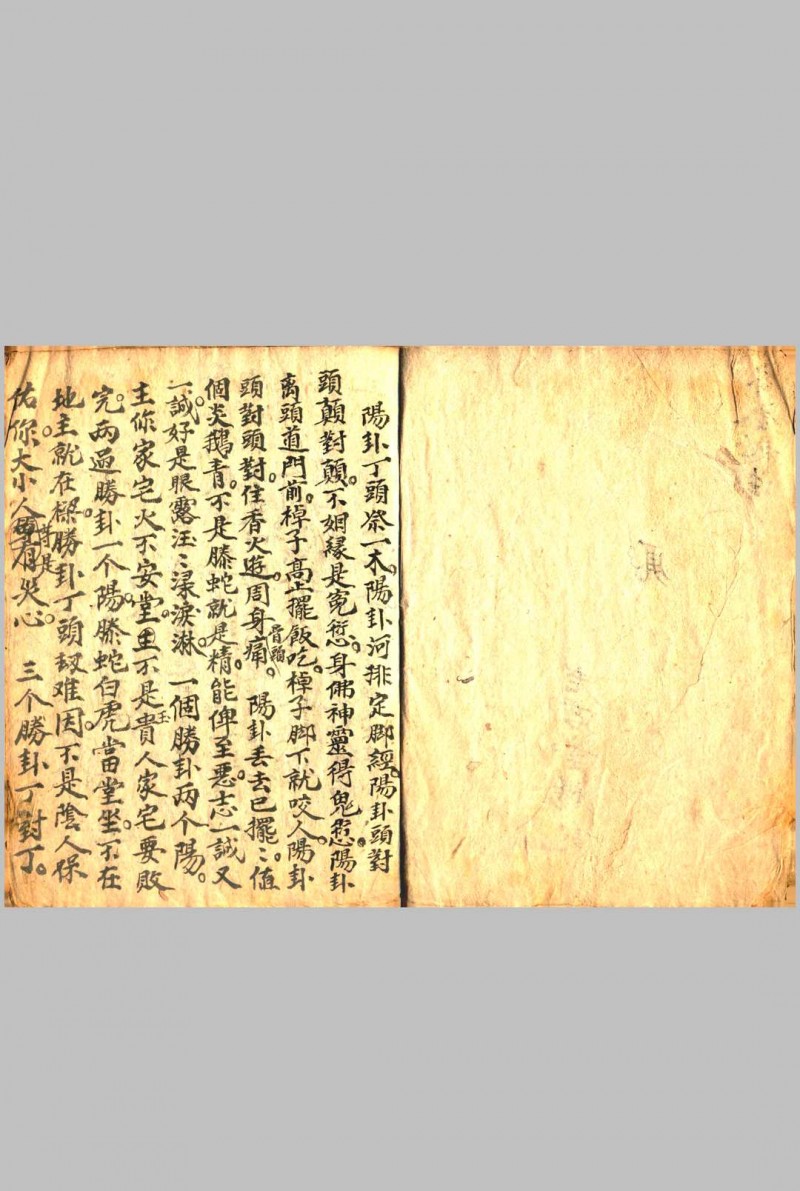 陽卦丁頭祭一木。陽卦河排定腳經。陽卦頭對
頭顛對顛。不姻緣是冤愆。身佛神靈得鬼惹。陽卦
离頭道門前。棹子高上擺飯吃。棹子脚下就咬人。陽卦
頭對頭對。住香火遊。周身痛骨痛。陽卦丢去已擺〻。值
個炎鵝青。不是螣蛇就是精。能俾至惡志一誠又
一誠。好是眼露汪〻渌淚淋。一個勝卦两个陽。
主你家宅火不安堂。里不是貴玉人家宅要敗
完。两過勝卦一个陽。螣蛇白虎當堂坐。不在
地主就在樑。勝卦丁頭刼难因。不是陰人保
佑你。大小人有災心。三个勝卦丁對丁。